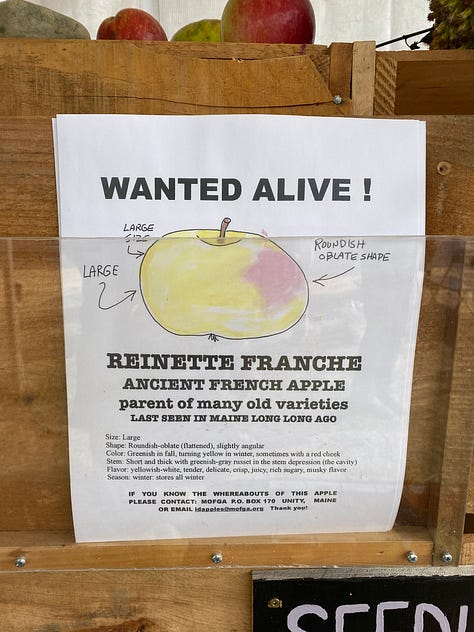 WANTED ALIVE !
LARGE
SIZE
LARGE
ROUNDISH
OBLATE SHAPE
REINETTE FRANCHE
ANCIENT FRENCH APPLE
parent of many old varieties
LAST SEEN IN MAINE LONG LONG AGO
Size: Large
Shape: Roundish-oblate (flattened), slightly angular
Color: Greenish in fall, turning yellow in winter, sometimes with a red cheek
Stem: Short and thick with greenish-gray russet in the stem depression (the cavity)
Flavor: yellowish-white, tender, delicate, crisp, juicy, rich sugary, musky flavor
Season: winter: stores all winter
IF YOU KNOW THE WHEREABOUTS OF THIS APPLE
PLEASE CONTACT: MOFGA P.O. BOX 170 UNITY, MAINE
OR EMAIL idapples@mofga.org Thank you!